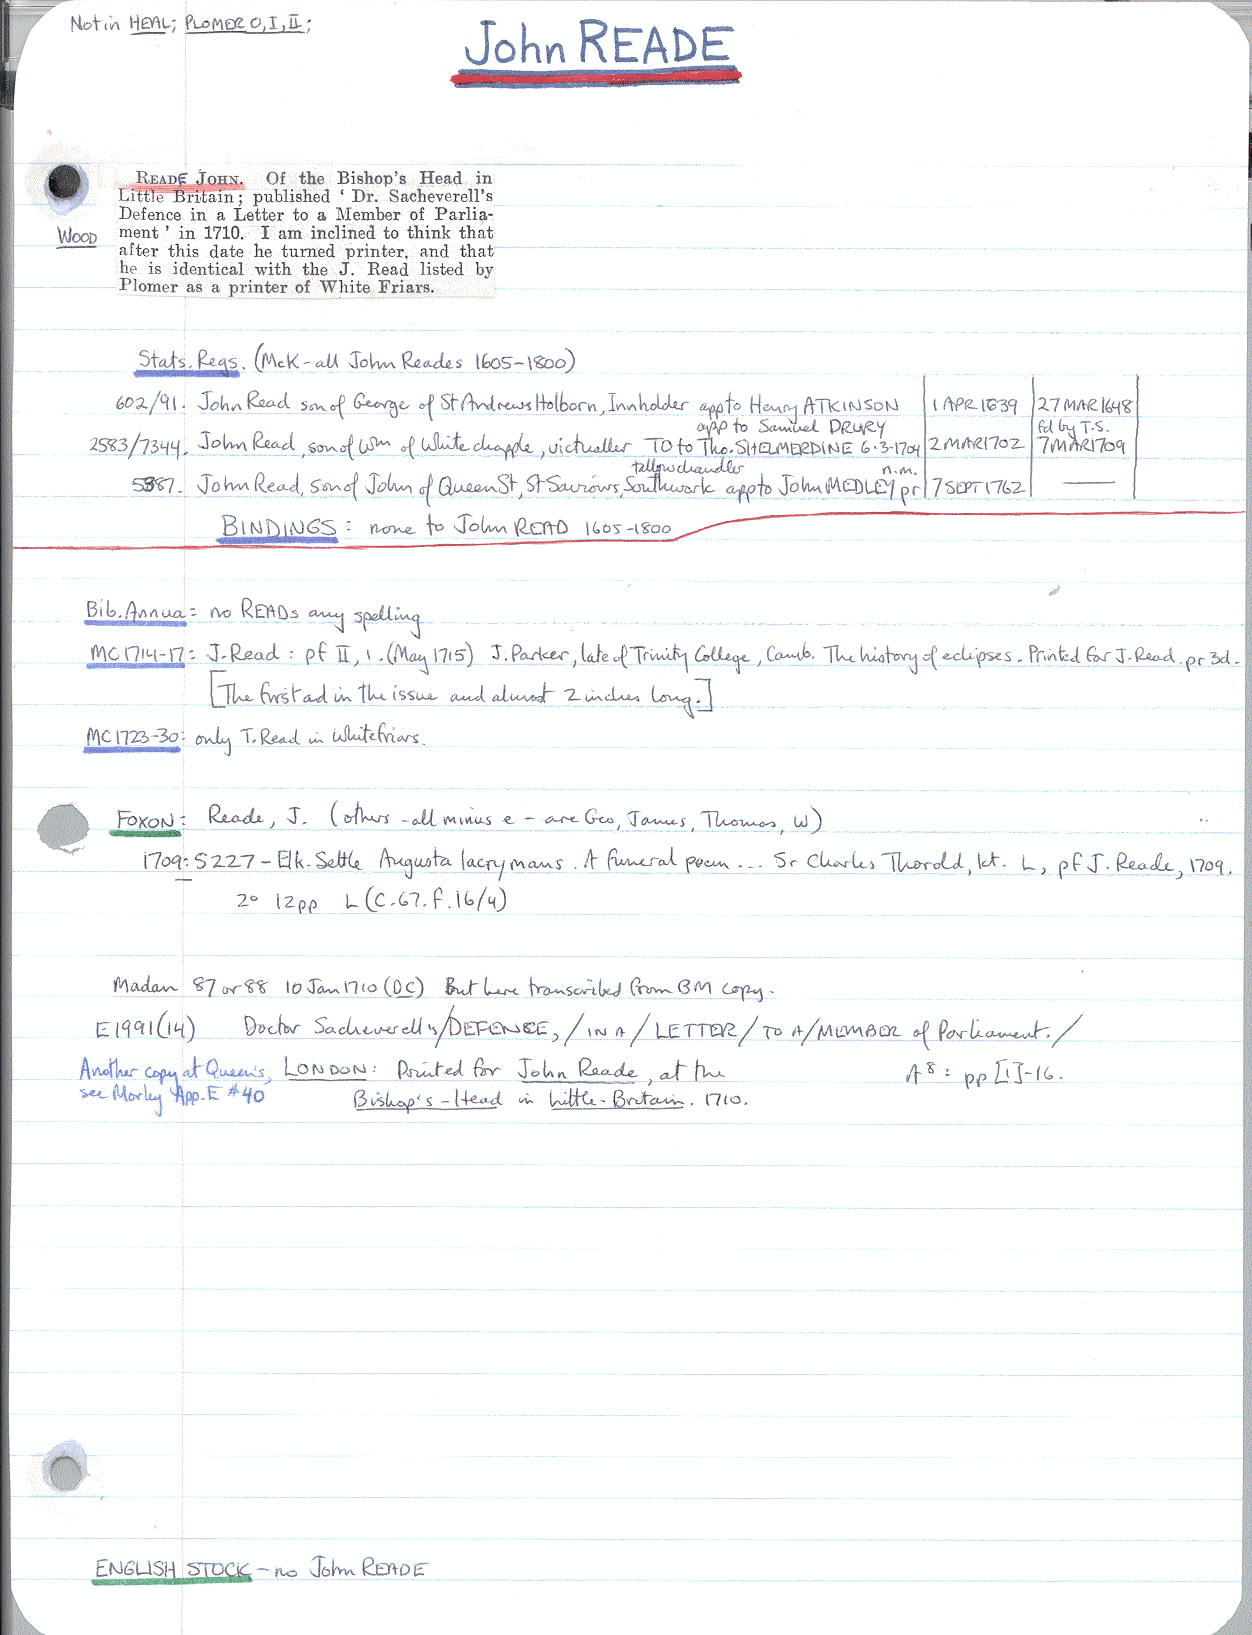 Not in HEAL; PLOMER O, I, II;
John READE
READE JOHN. Of the Bishop's Head in
Little Britain; published ‘ Dr. Sacheverell's
Defence in a Letter to a Member of Parlia-
ment ’ in 1710. I am inclined to think that
after this date he turned printer, and that
he is identical with the J. Read listed by
Plomer as a printer of White Friars.
WOOD
Stats. Regs. (McK - all John Reades 1605-1800)
602/91. John Read son of George of St Andrews Holborn, Innholder app to Henry ATKINSON 1 APR 1639 27 MAR 1648
app to Samuel DRURY fd by T.S.
2583/7344. John Read, son of Wm of Whitechapple, victualler TO to Tho. SHELMERDINE 6.3.1704 2 MAR 1702 7 MAR 1709
tallowchandler n.m.
5887. John Read, son of John of Queen St, St Saviours, Southwark app to John MEDLEY pr 7 SEPT 1762 —
BINDINGS: none to John READ 1605-1800
Bib. Annua: no READs any spelling
MC 1714-17: J. Read: pf II, 1. (May 1715) J. Parker, late of Trinity College, Camb. The history of eclipses. Printed for J. Read. pr 3d.
[The first ad in the issue and almost 2 inches long.]
MC 1723-30: only T. Read in Whitefriars.
FOXON: Reade, J. (others - all minus e - are Geo, James, Thomas, W)
1709: S227 - Elk. Settle Augusta lacrymans. A funeral poem ... Sr Charles Thorold, kt. L, pf J. Reade, 1709.
2° 12pp L (C.67.f.16/4)
Madan 87 or 88 10 Jan 1710 (DC) But here transcribed from BM copy.
E1991(14) Doctor Sacheverell's/DEFENCE,/IN A/LETTER/TO A/MEMBER of Parliament./
Another copy at Queen's, LONDON: Printed for John Reade, at the A⁸: pp [1]-16.
see Morley App. E #40 Bishop's-Head in Little-Britain. 1710.
ENGLISH STOCK - no John READE